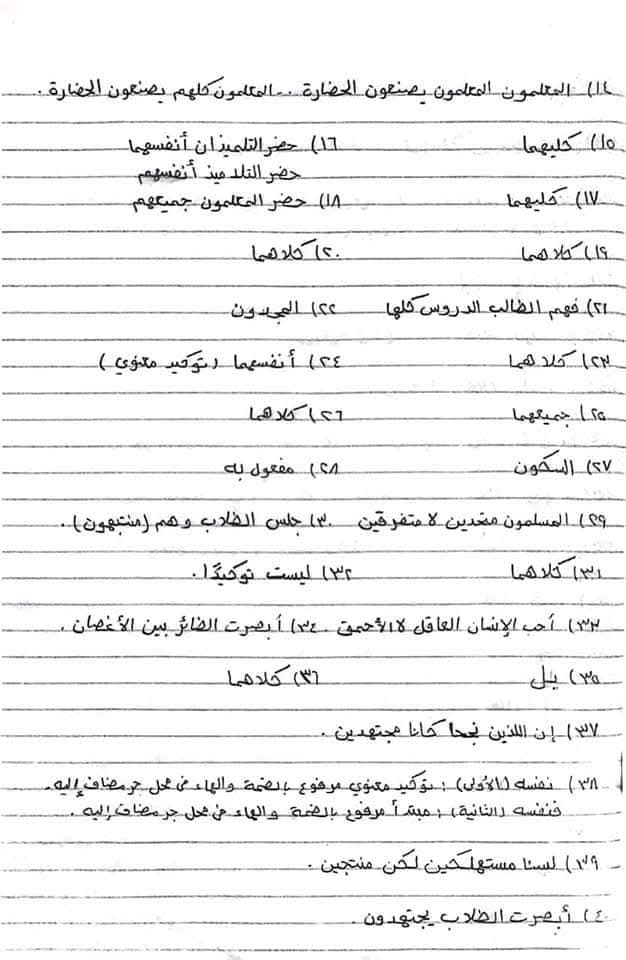 ١٤) المعلمون المعلمون يصنعون الحضارة .. المعلمون كلهم يصنعون الحضارة .
١٥) كليهما ١٦) حضر التلميذان أنفسهما
حضر التلاميذ أنفسهم
١٧) كليهما ١٨) حضر المعلمون جميعهم
١٩) كلاهما ٢٠) كلاهما
٢١) فهم الطالب الدروس كلها ٢٢) المجدون
٢٣) كلاهما ٢٤) أنفسهما (توكيد معنوي)
٢٥) جميعهما ٢٦) كلاهما
٢٧) السكون ٢٨) مفعول به
٢٩) المسلمون متحدين لا متفرقين ٣٠) جلس الطلاب وهم (منتبهون) .
٣١) كلاهما ٣٢) ليست توكيدًا .
٣٣) أحب الإنسان العاقل لا الأحمق . ٣٤) أبصرت الطائر بين الأغصان .
٣٥) بل ٣٦) كلاهما
٣٧) إن اللذين نجحا كانا مجتهدين .
٣٨) نفسه (الأولى) : توكيد معنوي مرفوع بالضمة والهاء في محل جر مضاف إليه .
فنفسه (الثانية) : مبتدأ مرفوع بالضمة والهاء في محل جر مضاف إليه .
٣٩) لسنا مستهلكين لكن منتجين .
٤٠) أبصرت الطلاب يجتهدون .